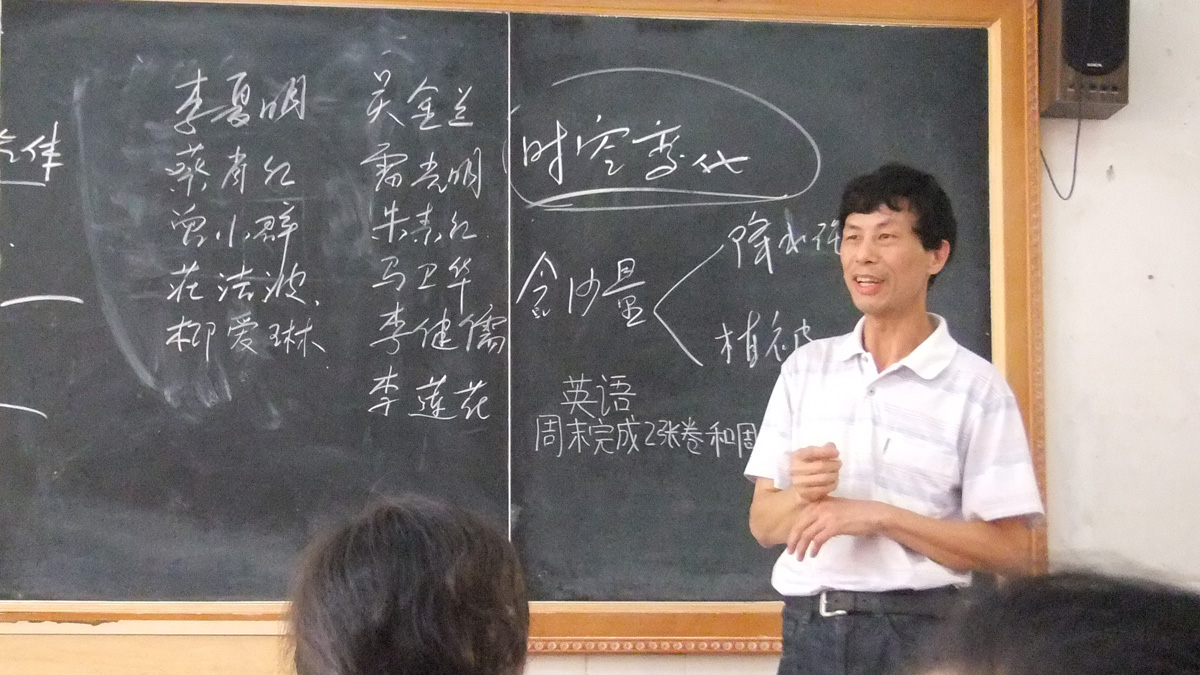 李夏明
蔡肖红
曾小群
庄法波
柳爱琳
吴金兰
雷光明
朱素红
马卫华
李健儒
李莲花
时空变化
含沙量
降水强
植被
英语
周末完成2张卷和周